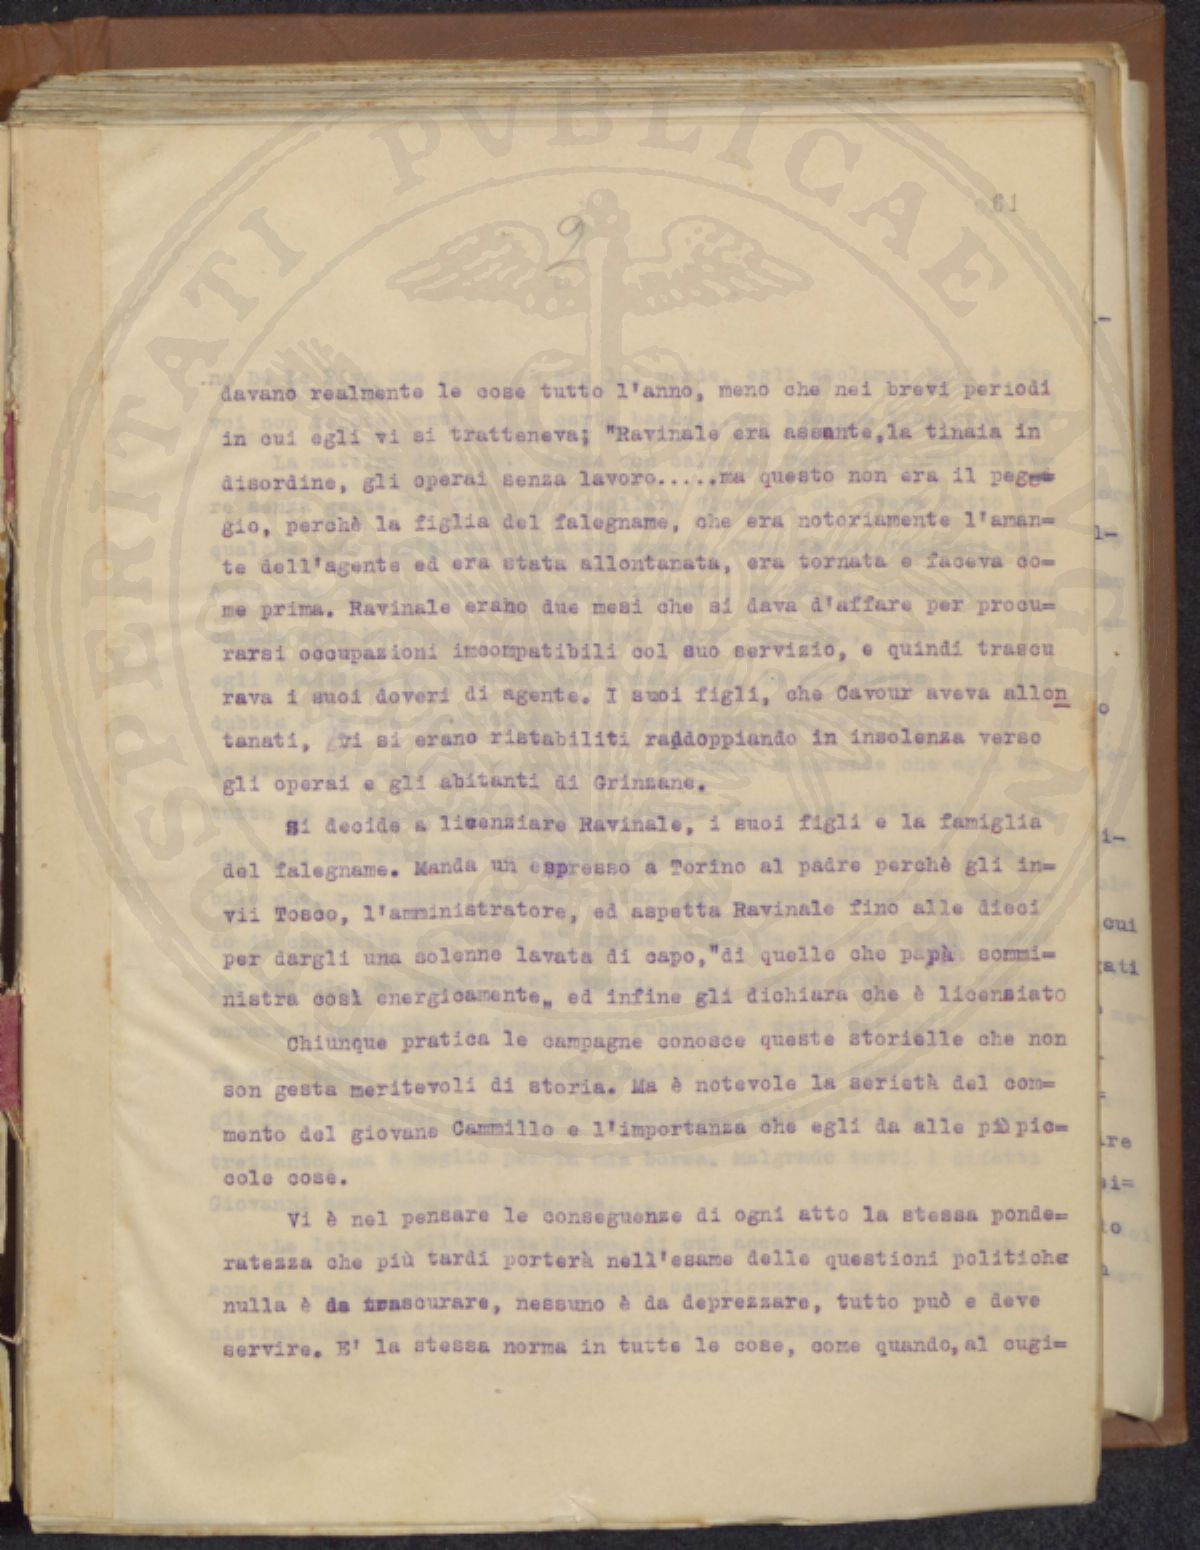 PROSPERITATI PVBLICAE AVGENDAE
61
2
davano realmente le cose tutto l'anno, meno che nei brevi periodi
in cui egli vi si tratteneva; "Ravinale era assente,la tinaia in
disordine, gli operai senza lavoro.....ma questo non era il peg
gio, perchè la figlia del falegname, che era notoriamente l'aman=
te dell'agente ed era stata allontanata, era tornata e faceva co=
me prima. Ravinale erano due mesi che si dava d'affare per procu=
rarsi occupazioni imcompatibili col suo servizio, e quindi trascu
rava i suoi doveri di agente. I suoi figli, che Cavour aveva allon
tanati, vi si erano ristabiliti raddoppiando in insolenza verso
gli operai e gli abitanti di Grinzane.
Si decide a licenziare Ravinale, i suoi figli e la famiglia
del falegname. Manda un espresso a Torino al padre perchè gli in=
vii Tosco, l'amministratore, ed aspetta Ravinale fino alle dieci
per dargli una solenne lavata di capo,"di quelle che papà sommi=
nistra così energicamente„ ed infine gli dichiara che è licensiato
Chiunque pratica le campagne conosce queste storielle che non
son gesta meritevoli di storia. Ma è notevole la serietà del com=
mento del giovane Cammillo e l'importanza che egli da alle più pic=
cole cose.
Vi è nel pensare le conseguenze di ogni atto la stessa ponde=
ratezza che più tardi porterà nell'esame delle questioni politiche
nulla è da trascurare, nessuno è da deprezzare, tutto può e deve
servire. E' la stessa norma in tutte le cose, come quando,al cugi=
cui